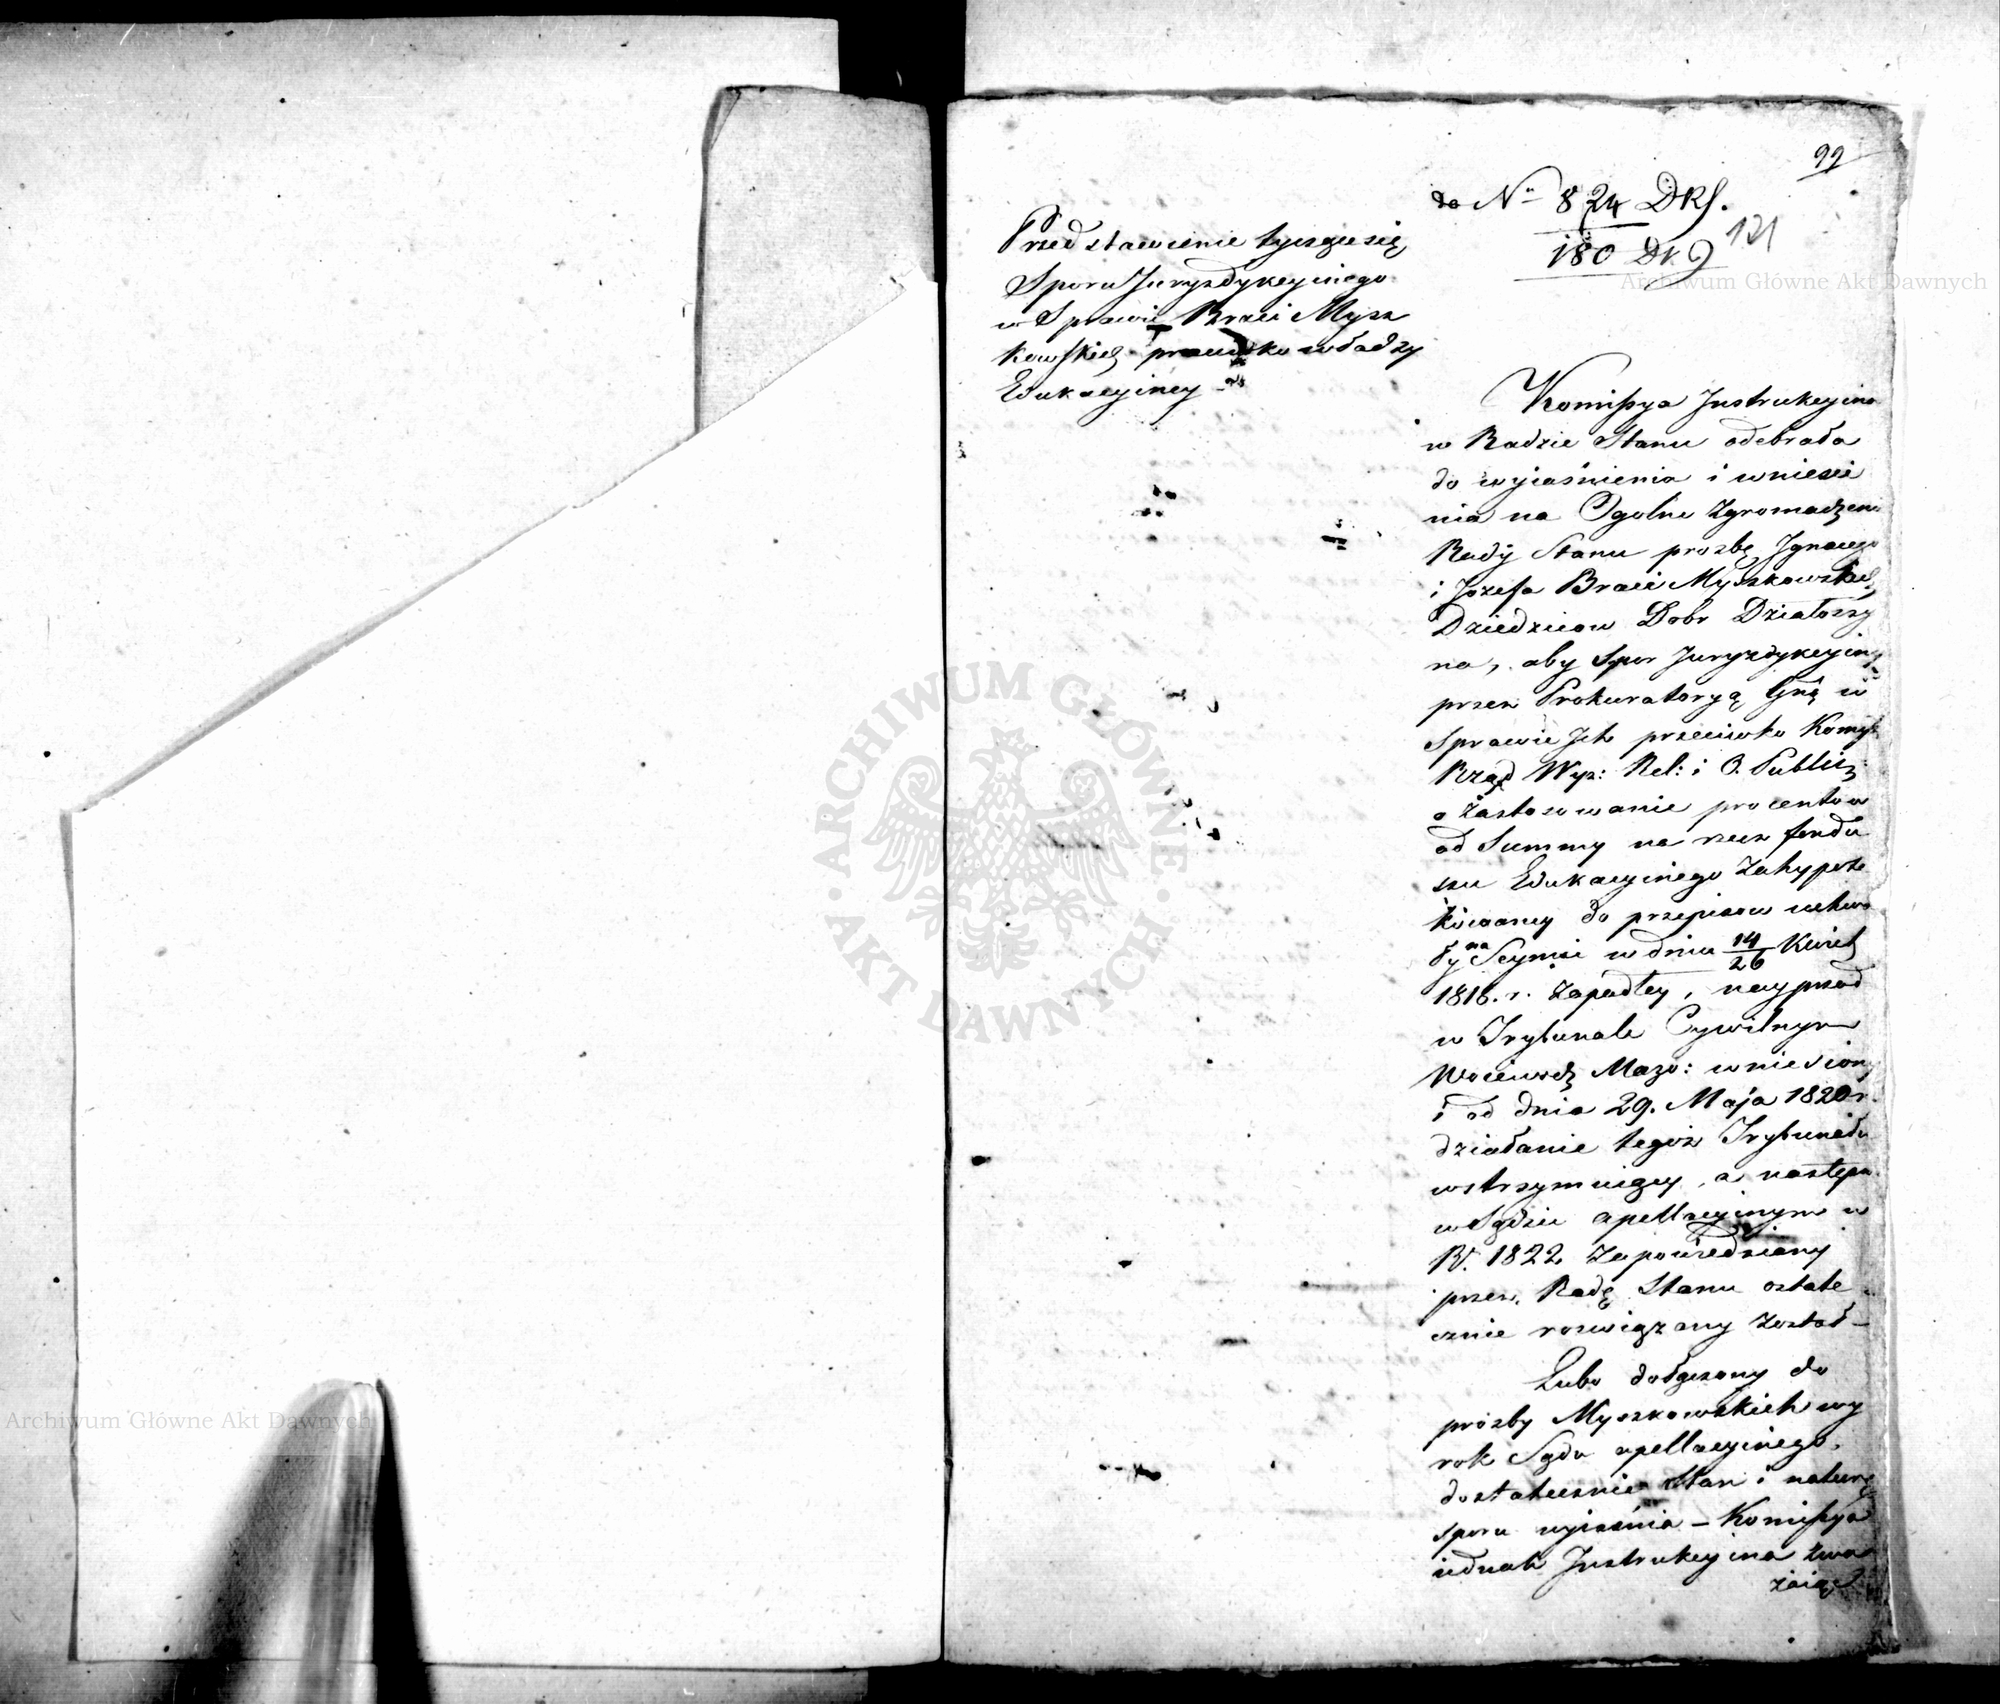 99
do N° 824 DRS.
180 DK
121
Przedstawienie tyczące się
Sporu Juryzdykcyinego
w Sprawie Braci Mysz
kowskich przeciwko władzy
Edukacyiney
Kommissya Instrukcyina
w Radzie Stanu odebrała
do wyiaśnienia i wniesie
nia na Ogolne Zgromadzenie
Rady Stanu prozbę Ignacego
i Jozefa Braci Myszkowskich
Dziedzicow Dobr Działoszy
na, aby Spor Juryzdykcyiny
przez Prokuratoryą Gną w
Sprawie Ich przeciwko Komyi
Rząd Wyz: Rel: i O. Public:
o Zastosowanie procentow
od Summy na rzecz fundu
szu Edukacyinego Zahypote
kowaney do przepisow uchwa
ły na Seymie w dniu 14/26 Kwiet
1818. r. Zapadłey, nayprzod
w Trybunale Cywilnym
Woiewodz Mazo: wniesiony
i od dnia 29. Maja 1820 r.
działanie tegoż Trybunału
wstrzymuiący, a następn
w Sądzie apellacyinym w
R. 1822 Zapowiedziany
przez Radę Stanu ostate
cznie rozwiązany został –
Lubo dołączony do
prozby Myszkowskich wy
rok Sądu apellacyinego,
dostatecznie Stan i naturę
sporu wyiaśnia – Komissya
iednak Instrukcyina zwa
żaiąc
Archiwum Główne Akt Dawnych
Archiwum Główne Akt Dawnych
ARCHIWUM GŁÓWNE
AKT DAWNYCH